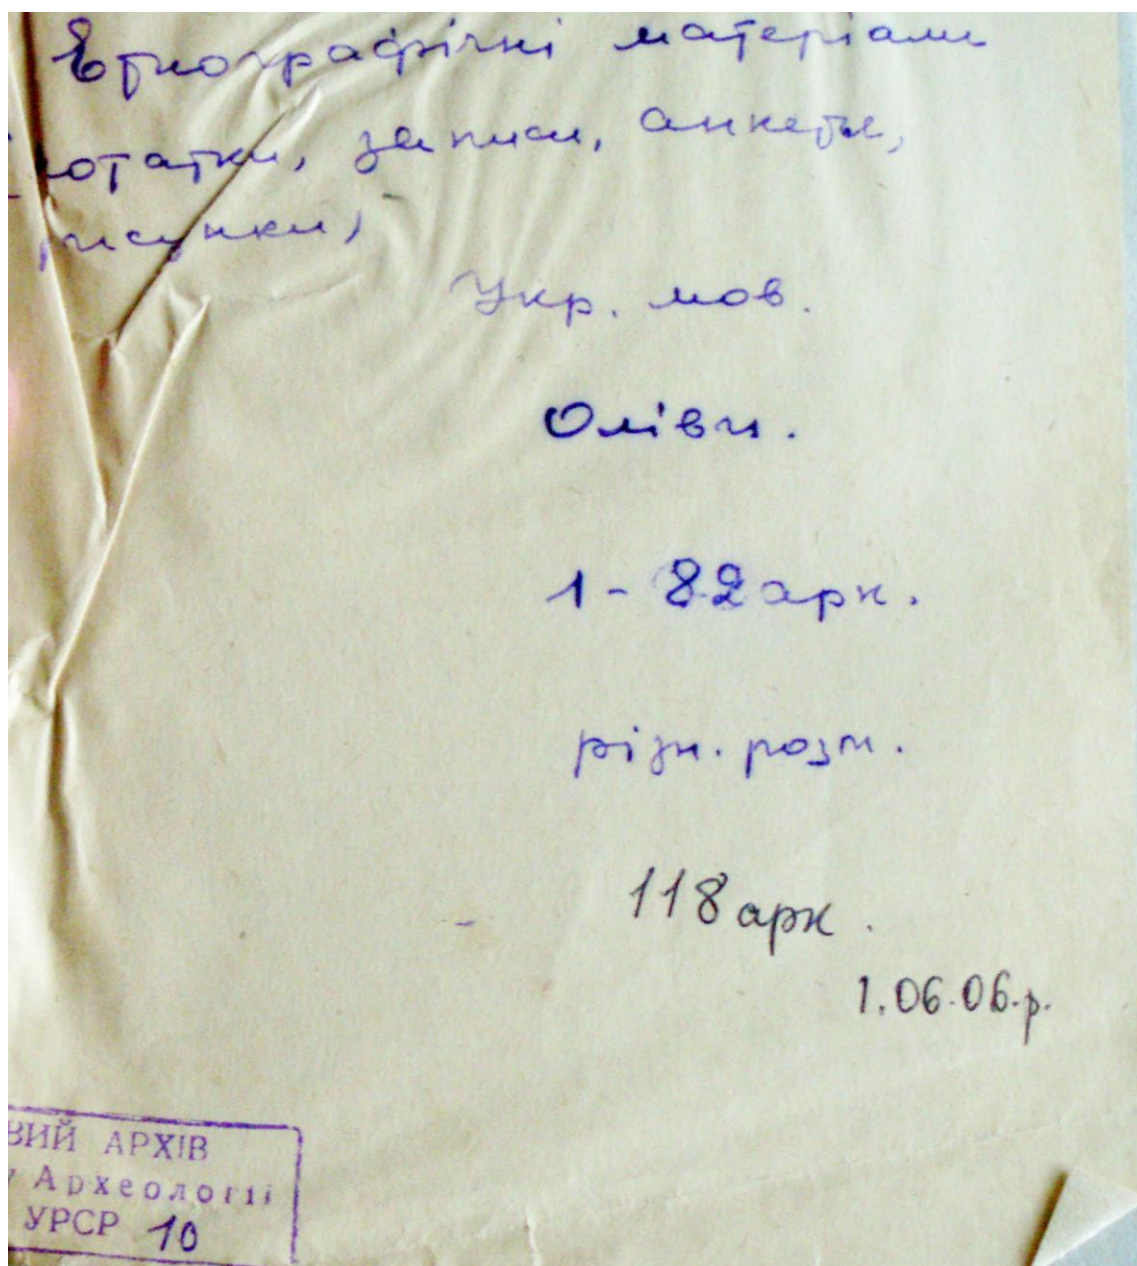 Етнографічні матеріали
нотатки, записи, анкети,
рисунки)
Укр. мов.
Олівц.
1-82 арк.
різн. розм.
118 арк.
1.06.06.р.
ВИЙ АРХІВ
у Археології
УРСР 10